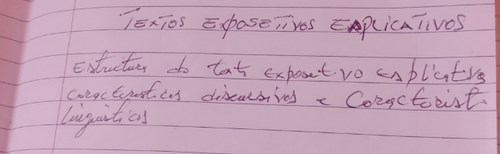 TEXTOS EXPOSETIVOS EXPLICATIVOS
Estrutura do texto expositivo explicativo
caracteristicas discursivos e Caracterist.
linguisticos